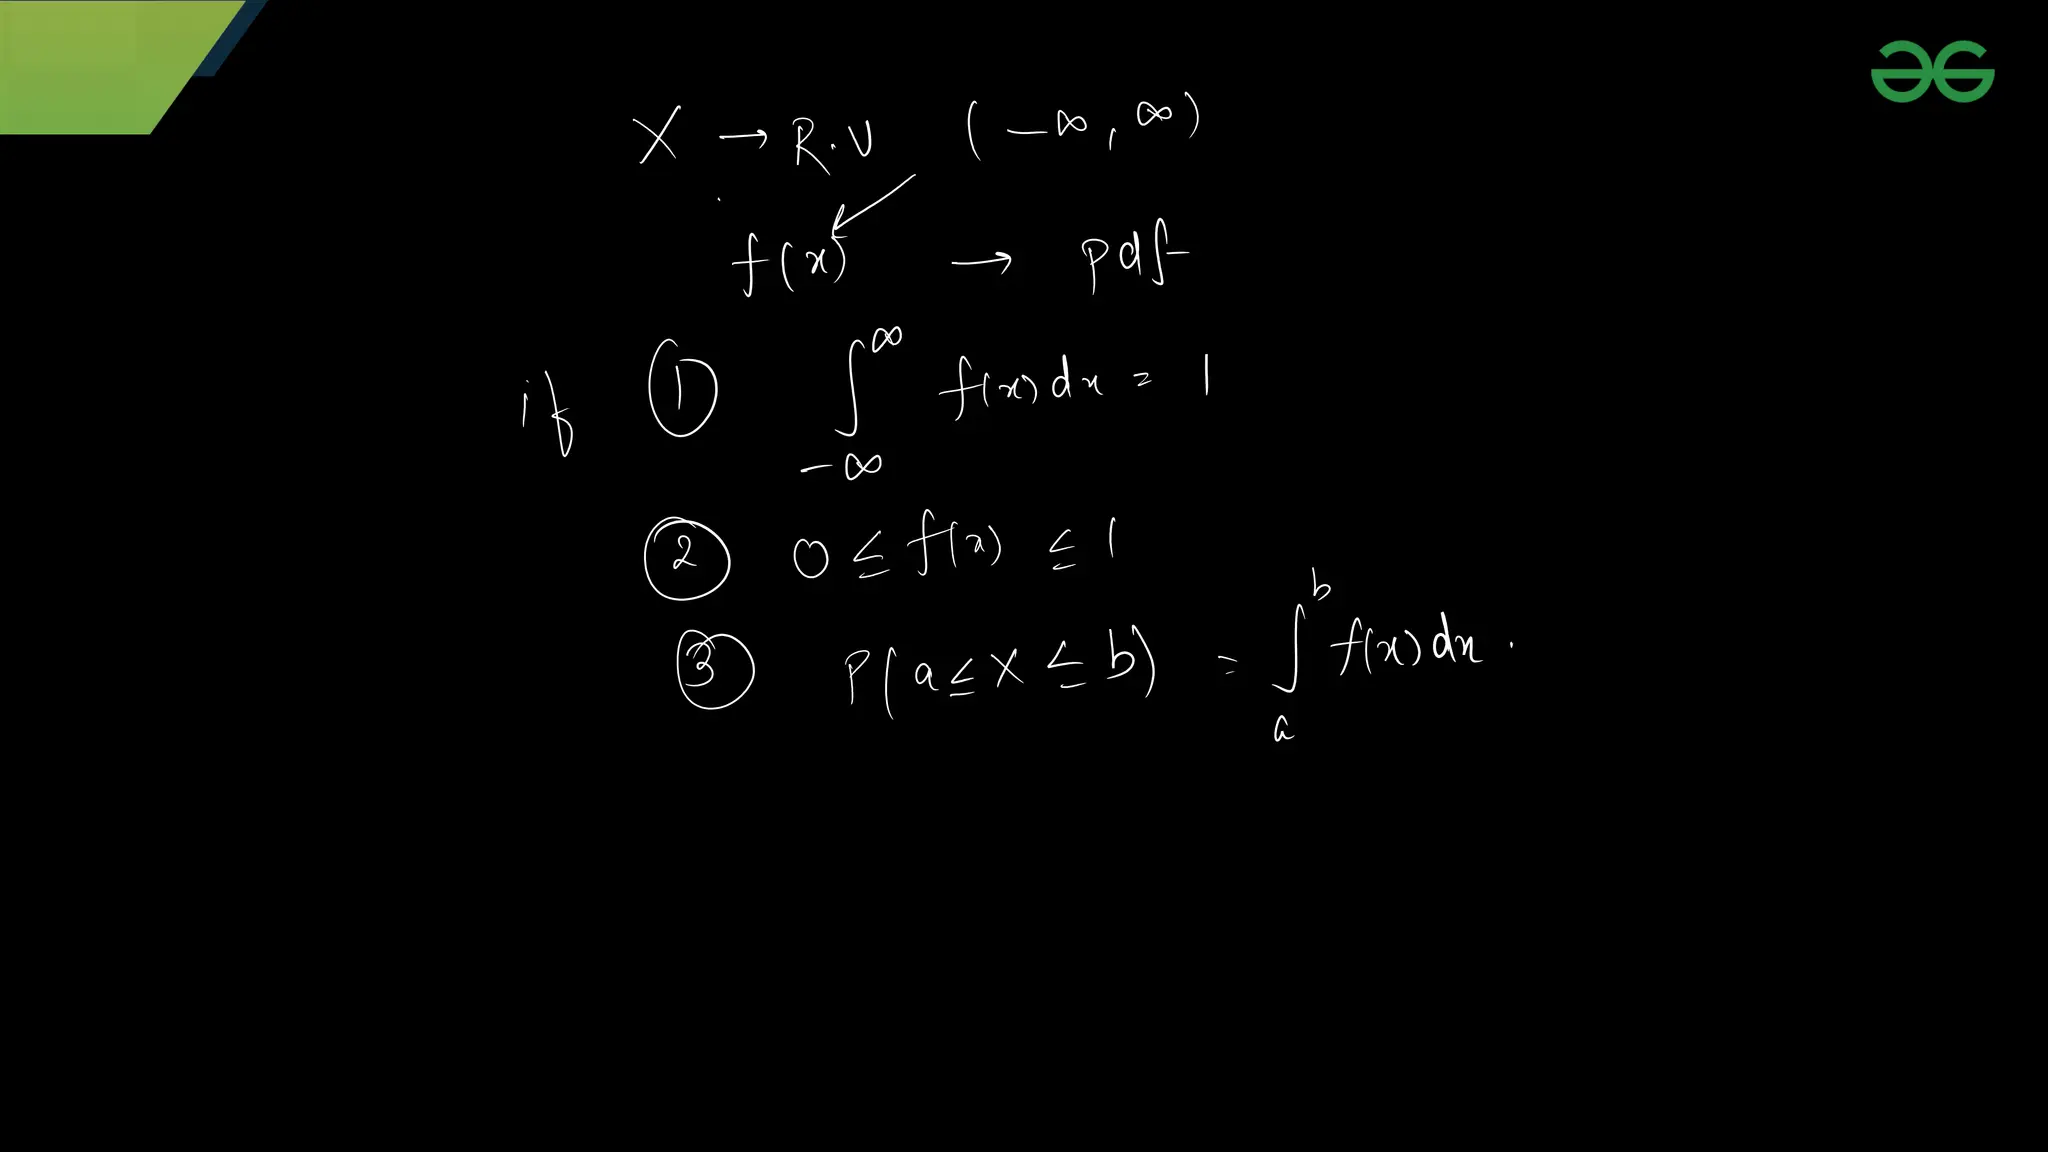 X → R.V (-∞, ∞)
f(x) → pdf
if ① ∫_{-∞}^{∞} f(x) dx = 1
② 0 ≤ f(x) ≤ 1
③ P(a ≤ X ≤ b) = ∫_{a}^{b} f(x) dx.